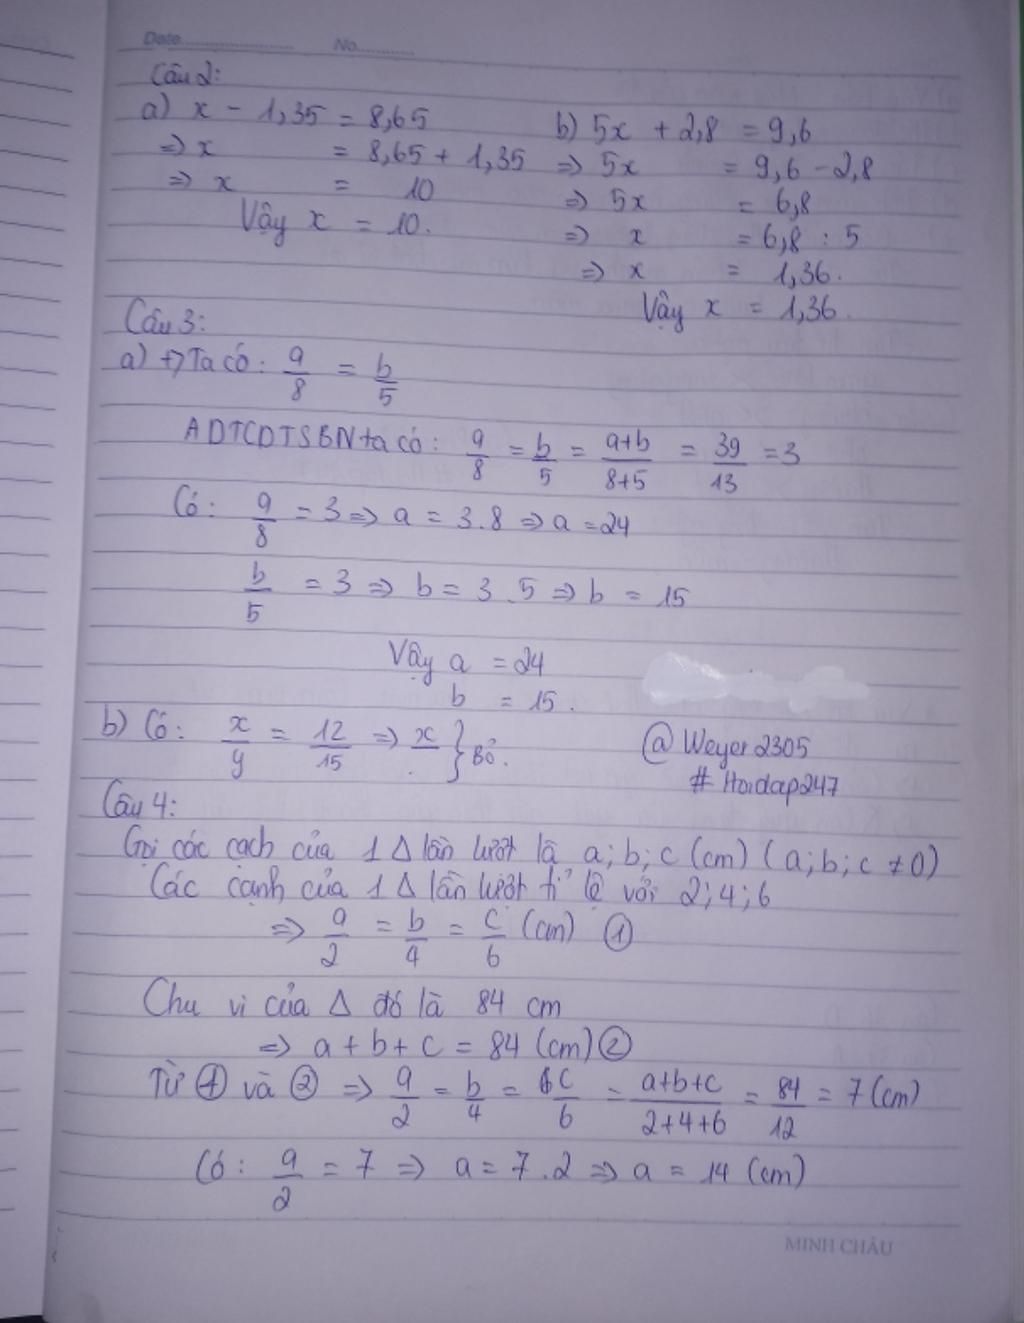 Date No
Câu 2:
a) x - 1,35 = 8,65
=> x = 8,65 + 1,35
=> x = 10
Vậy x = 10.
b) 5x + 2,8 = 9,6
=> 5x = 9,6 - 2,8
=> 5x = 6,8
=> x = 6,8 : 5
=> x = 1,36.
Vậy x = 1,36.
Câu 3:
a) +) Ta có: a/8 = b/5
ADTCDTSBN ta có: a/8 = b/5 = (a+b)/(8+5) = 39/13 = 3
Có: a/8 = 3 => a = 3.8 => a = 24
b/5 = 3 => b = 3.5 => b = 15
Vậy a = 24
b = 15.
b) Có: x/y = 12/15 => x } Bỏ.
@Weyer2305
#Hoidap247
Câu 4:
Gọi các cạch của 1 Δ lần lượt là a; b; c (cm) (a; b; c ≠ 0)
Các cạnh của 1 Δ lần lượt tỉ lệ với 2; 4; 6
=> a/2 = b/4 = c/6 (cm) ①
Chu vi của Δ đó là 84 cm
=> a + b + c = 84 (cm) ②
Từ ① và ② => a/2 = b/4 = c/6 = (a+b+c)/(2+4+6) = 84/12 = 7 (cm)
Có: a/2 = 7 => a = 7.2 => a = 14 (cm)
MINH CHÂU